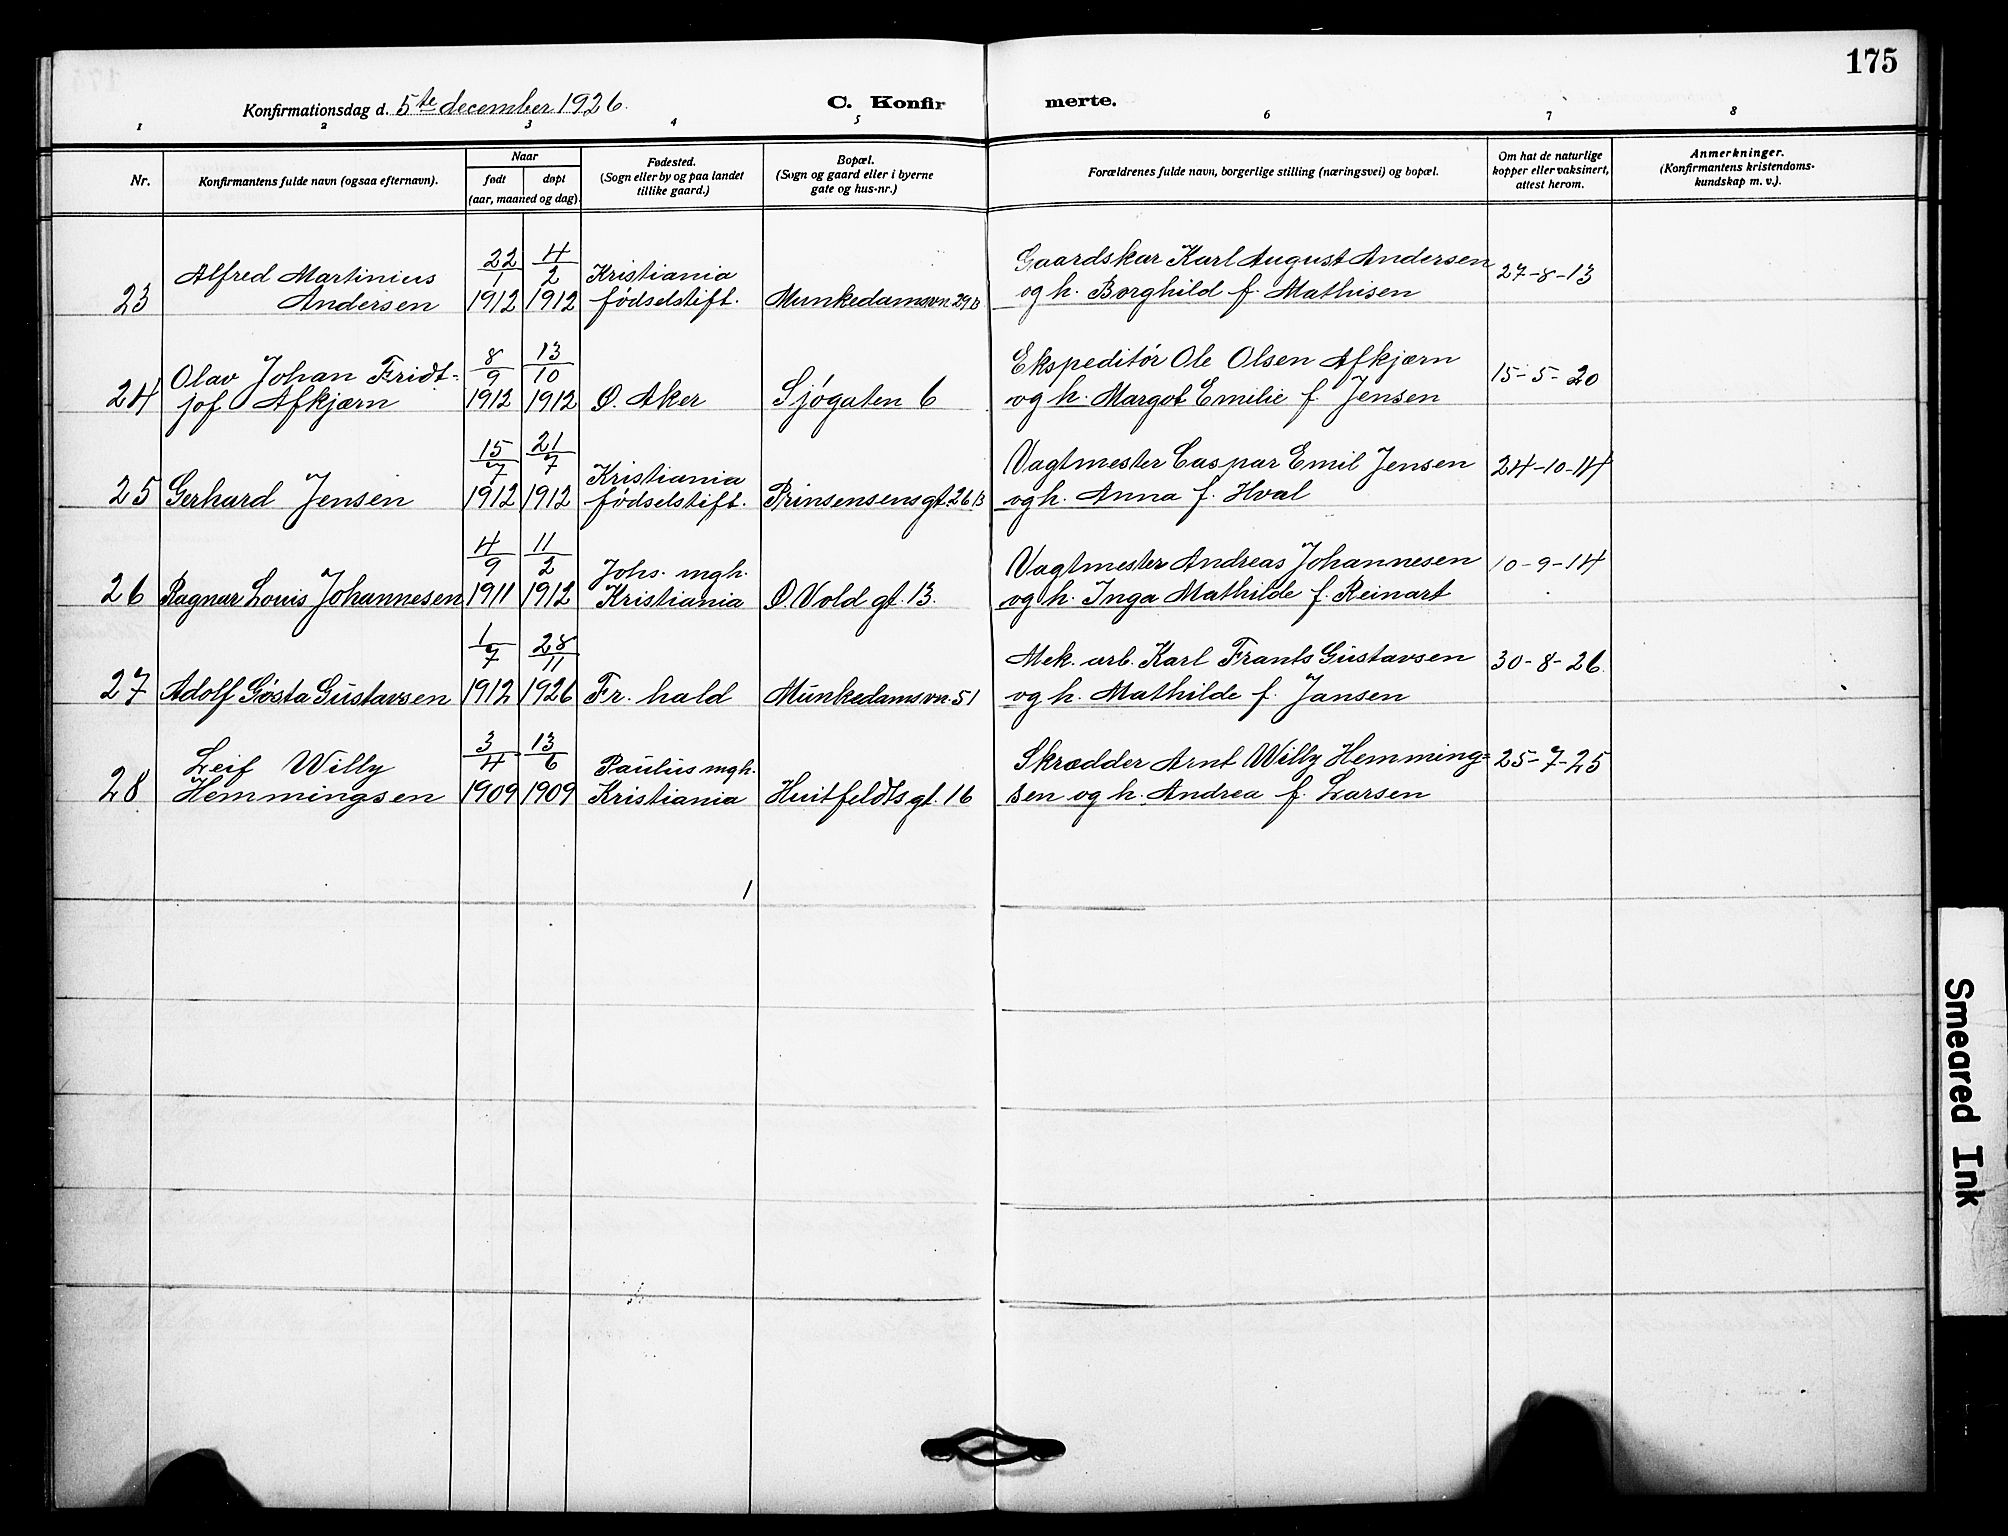 175
Konfirmationsdag d. 5te december 1926.
C. Konfirmerte.
1 2 3 4 5 6 7 8
Nr.
Konfirmantens fulde navn (ogsaa efternavn).
Naar
født
døpt
(aar, maaned og dag).
Fødested.
(Sogn eller by og paa landet
tillike gaard.)
Bopæl.
(Sogn og gaard eller i byerne
gate og hus-nr.)
Forældrenes fulde navn, borgerlige stilling (næringsvei) og bopæl.
Om hat de naturlige
kopper eller vaksinert,
attest herom.
Anmerkninger.
(Konfirmantens kristendoms-
kundskap m. v.).
23
Alfred Martinius
Andersen
22/1
1912
4/2
1912
Kristiania
fødselstift.
Munkedamsvn. 29 B
Gaardskar Karl August Andersen
og h. Borghild f. Mathisen
27-8-13
24
Olav Johan Fridt-
jof Afkjærn
8/9
1912
13/10
1912
Ø. Aker
Sjøgaten 6
Ekspeditør Ole Olsen Afkjærn
og h. Margot Emilie f. Jensen
15-5-20
25
Gerhard Jensen
15/7
1912
21/7
1912
Kristiania
fødselstift.
Prinsensensgt. 26 B
Vagtmester Caspar Emil Jensen
og h. Anna f. Hval
24-10-14
26
Ragnar Louis Johannesen
4/9
1911
11/2
1912
Johs. mgh.
Kristiania
Ø. Vold gt. 13.
Vagtmester Andreas Johannesen
og h. Inga Mathilde f. Reinart
10-9-14
27
Adolf Gøsta Gustavsen
1/7
1912
28/11
1926
Fr. hald
Munkedamsvn. 51
Mek. arb. Karl Frants Gustavsen
og h. Mathilde f. Jansen
30-8-26.
28
Leif Willy
Hemmingsen
3/4
1909
13/6
1909
Paulus mgh.
Kristiania
Huitfeldts gt. 16
Skrædder Arnt Willy Hemming=
sen og h. Andrea f. Larsen
25-7-25
Smeared Ink